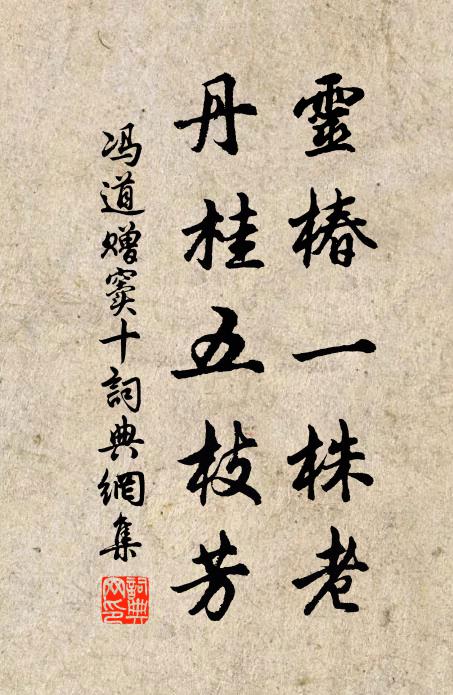 靈椿一株老
丹桂五枝芳
冯道赠窦十詞典網集
詞典网印